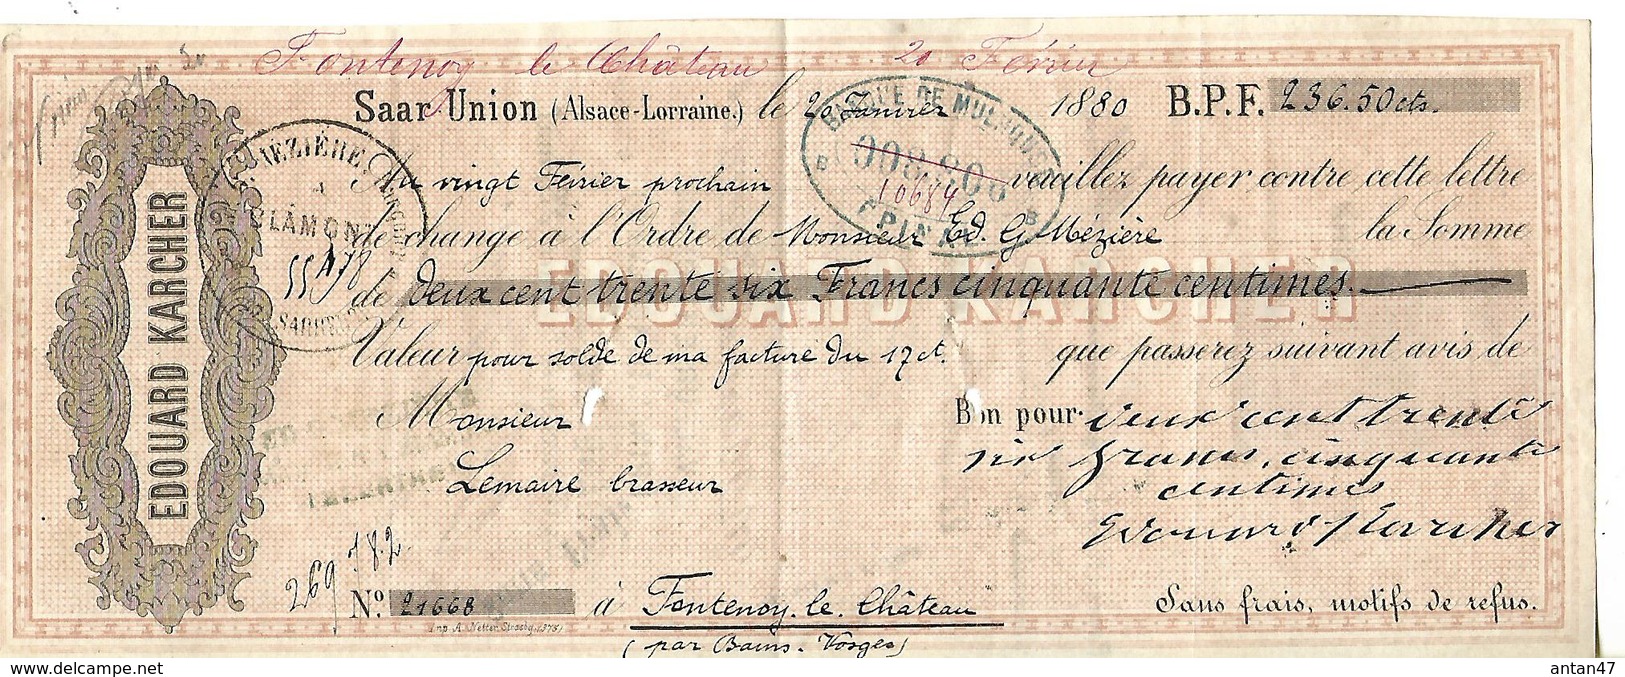 Fontenoy le Château 20 Février
Saar Union (Alsace-Lorraine.) le 20 Janvier 1880 B.P.F. 236.50 cts.
BANQUE DE MULHOUSE
008806
10684
B B
EPINAL
MEZIÈRE
BLAMONT
Au vingt Février prochain veuillez payer contre cette lettre
de change à l'Ordre de Monsieur Ed. G. Mézière la Somme
55478
de deux cent trente six Francs cinquante centimes.
EDOUARD KARCHER
EDOUARD KARCHER
Valeur pour solde de ma facture du 17 ct. que passerez suivant avis de
Monsieur Bon pour deux cent trente
six francs, cinquante
Lemaire brasseur centimes
Edouard Karcher
269 782
No. 21668 à Fontenoy-le-Château Sans frais, motifs de refus.
Imp. A. Netter Strasbg.
(par Bains. Vosges)
antan47